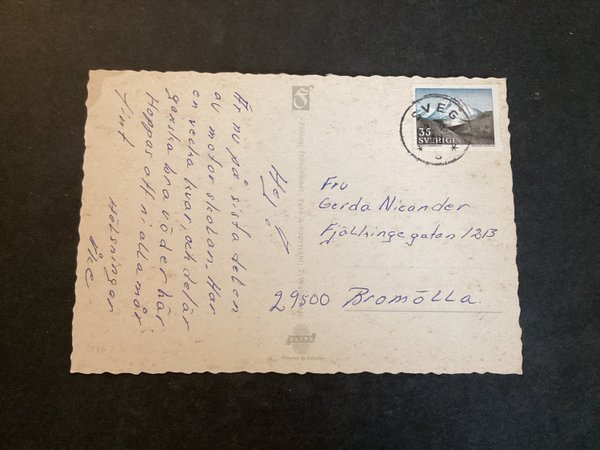 Hej!
Är nu på sista delen
av motorskolan. Har
en vecka kvar, och det är
ganska bra väder här
Hoppas att ni alla mår
fint
Hälsningar
Åke
SVEG
35
SVERIGE
Fru
Gerda Nicander
Fjällsingegatan 1213
29500 Bromölla.
ULTRA
Printed in Sweden